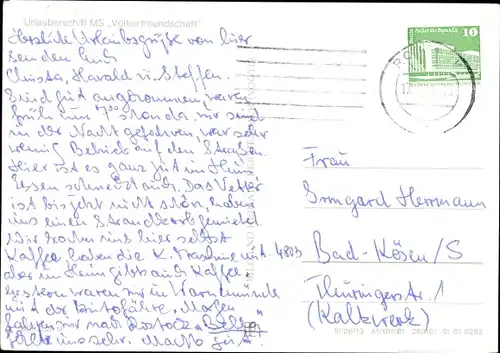 Urlauberschiff MS „Völkerfreundschaft"
Herzliche Urlaubsgrüße von hier
senden Euch
Christa, Harald u. Steffen.
Sind gut angekommen, waren
früh um 7⁰⁰ schon da, wir sind
in der Nacht gefahren, war sehr
wenig Betrieb auf den Straßen.
Hier ist es ganz gut im Heim
Essen schmeckt auch. Das Wetter
ist bis jetzt nicht schön, haben
uns einen Strandkorb gemietet.
Wir kochen uns hier selbst
Kaffee, haben die K. Maschine mit.
aber im Heim gibts auch Kaffee
Gestern waren wir in Warnemünde
mit der Autofähre, Morgen
fahren wir nach Rostock.
uns sehr. Macht's gut!
10
Palast der Republik
Frau
Irmgard Herrmann
4803
Bad-Kösen/S
Thüringerstr. 1
(Kalkwerk)
01 01 0292